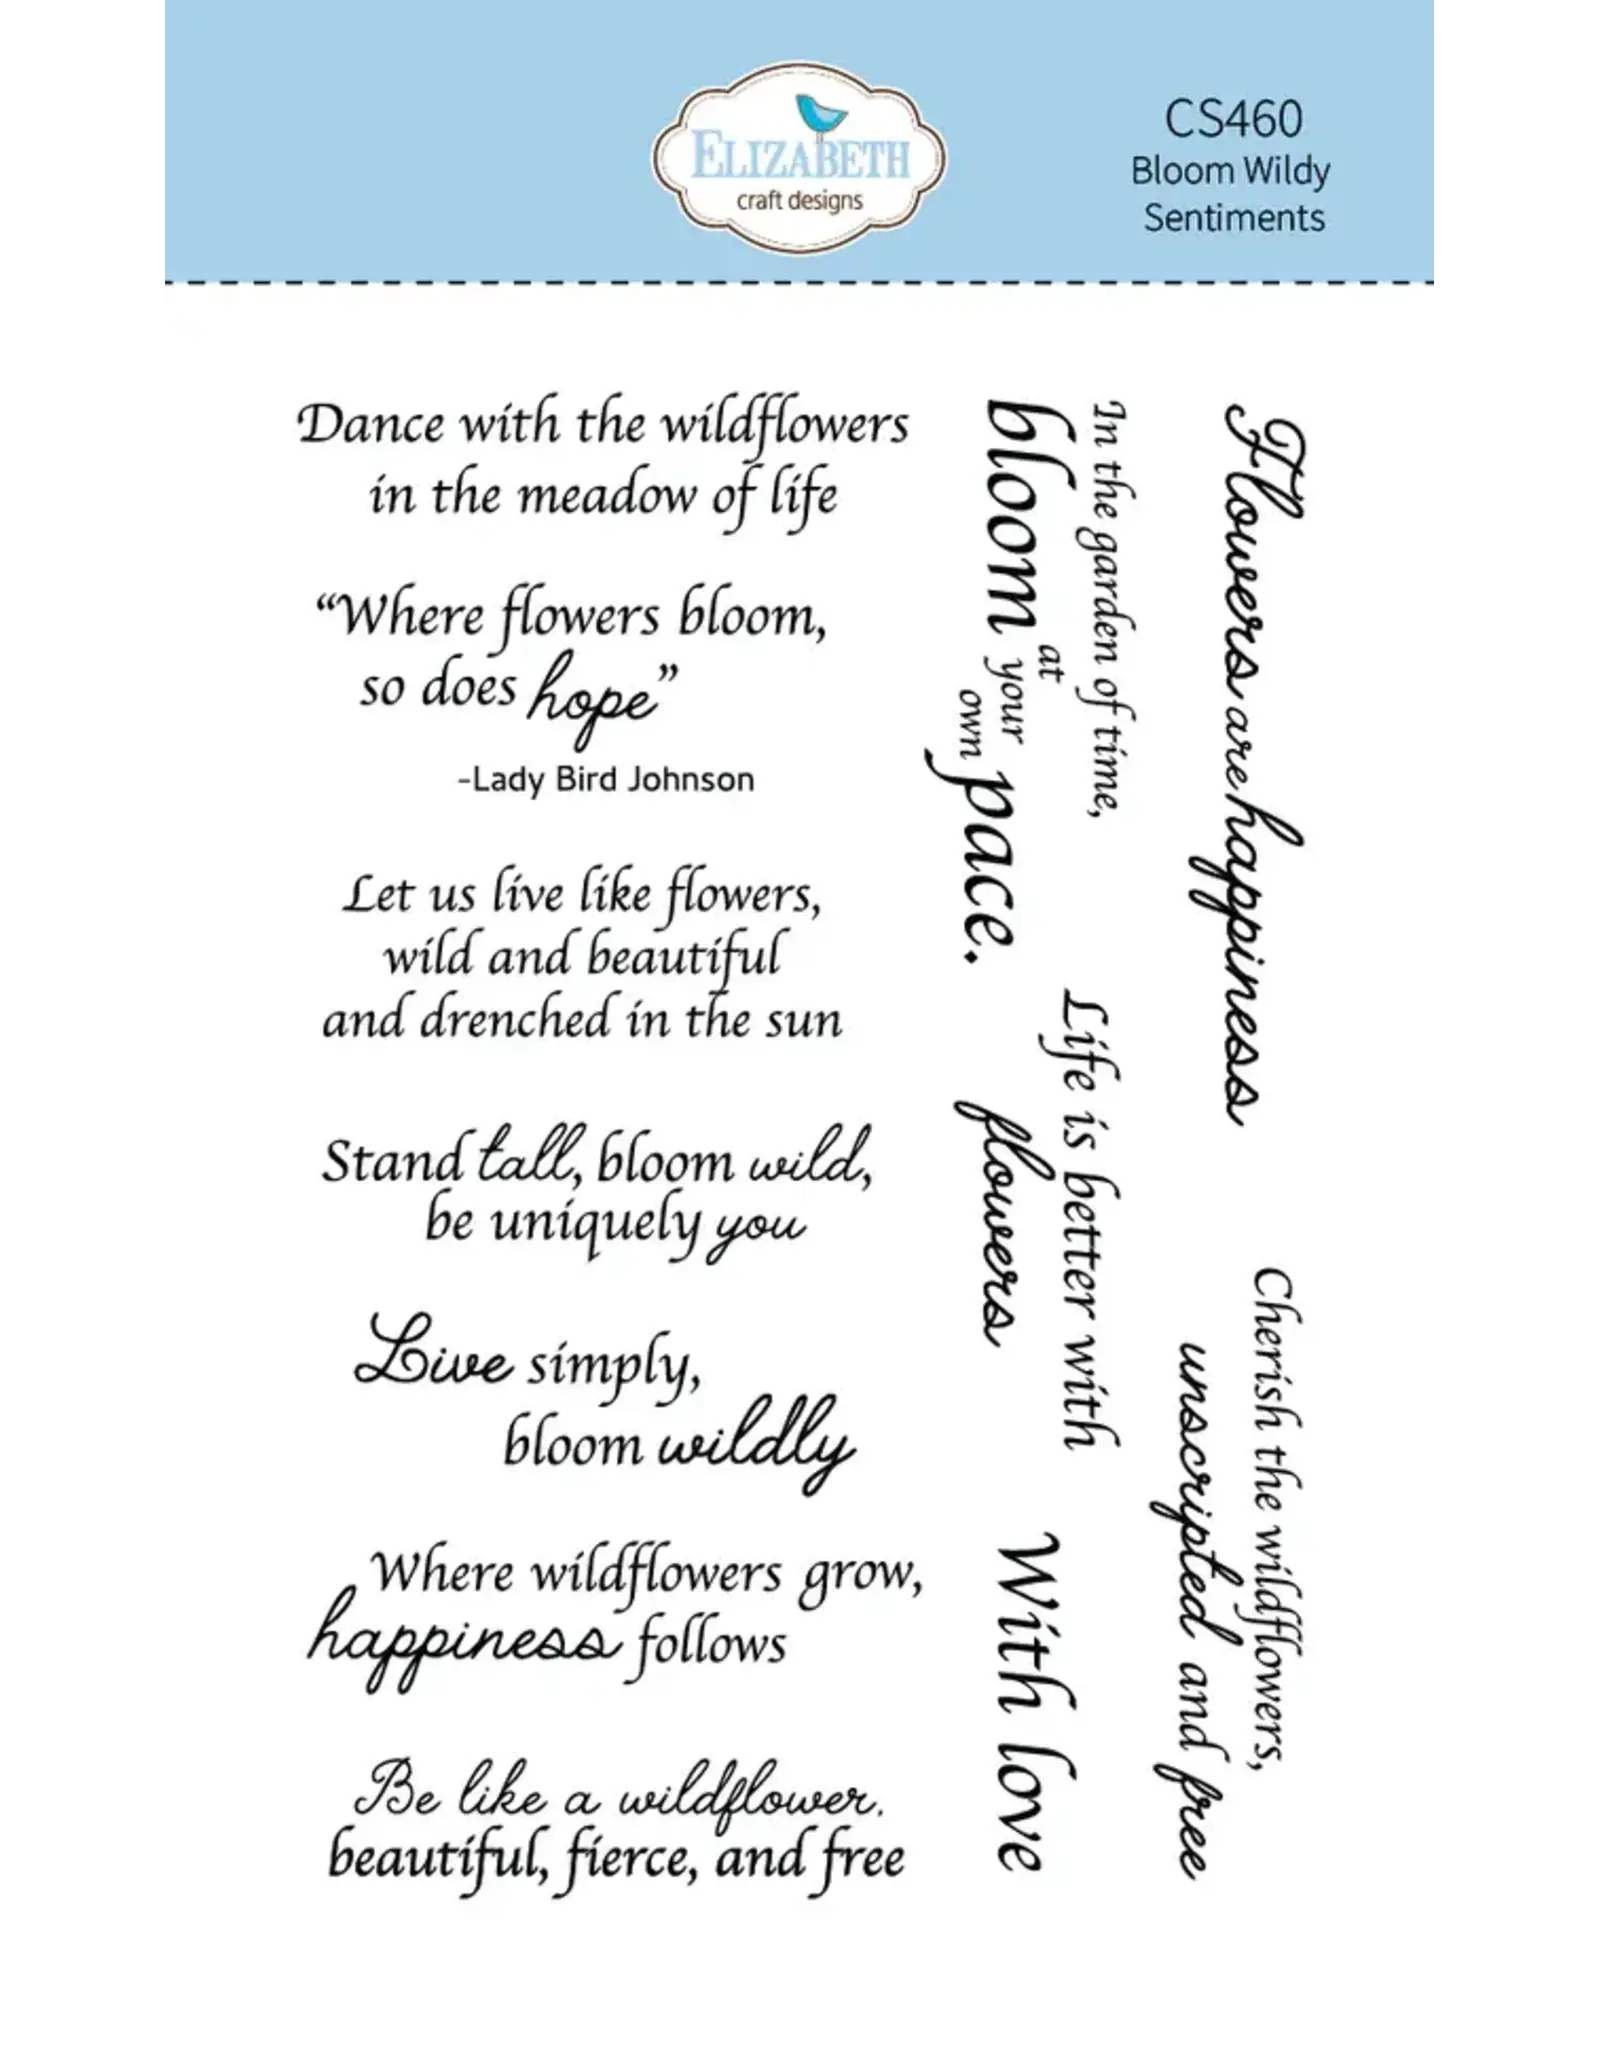 ELIZABETH
craft designs
CS460
Bloom Wildy
Sentiments
Dance with the wildflowers
in the meadow of life
“Where flowers bloom,
so does hope”
-Lady Bird Johnson
Let us live like flowers,
wild and beautiful
and drenched in the sun
Stand tall, bloom wild,
be uniquely you
Live simply,
bloom wildly
Where wildflowers grow,
happiness follows
Be like a wildflower.
beautiful, fierce, and free
In the garden of time,
bloom at your own pace.
Life is better with
flowers
With love
Flowers are happiness
Cherish the wildflowers,
unscripted and free